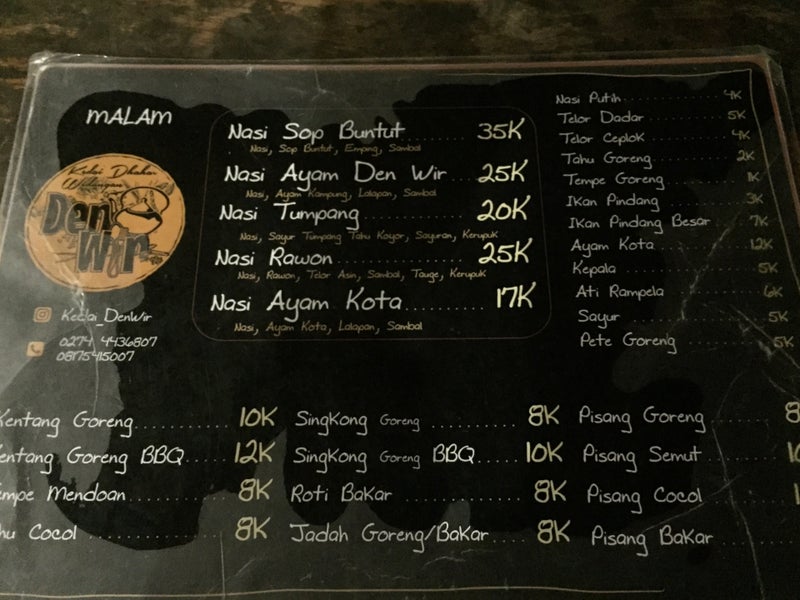 MALAM
Kedai Dhahar
Den Wir
Kedai_DenWir
0274 4436807
08175415007
Nasi Sop Buntut 35K
Nasi, Sop Buntut, Emping, Sambal
Nasi Ayam Den Wir 25K
Nasi, Ayam Kampung, Lalapan, Sambal
Nasi Tumpang 20K
Nasi, Sayur Tumpang Tahu Koyor, Sayuran, Kerupuk
Nasi Rawon 25K
Nasi, Rawon, Telor Asin, Sambal, Tauge, Kerupuk
Nasi Ayam Kota 17K
Nasi, Ayam Kota, Lalapan, Sambal
Nasi Putih 4K
Telor Dadar 5K
Telor Ceplok 4K
Tahu Goreng 2K
Tempe Goreng 1K
Ikan Pindang 3K
Ikan Pindang Besar 7K
Ayam Kota 12K
Kepala 5K
Ati Rampela 6K
Sayur 5K
Pete Goreng 5K
Kentang Goreng 10K
entang Goreng BBQ 12K
empe Mendoan 8K
hu Cocol 8K
Singkong Goreng 8K
Singkong Goreng BBQ 10K
Roti Bakar 8K
Jadah Goreng/Bakar 8K
Pisang Goreng 8
Pisang Semut 10
Pisang Cocol 1
Pisang Bakar